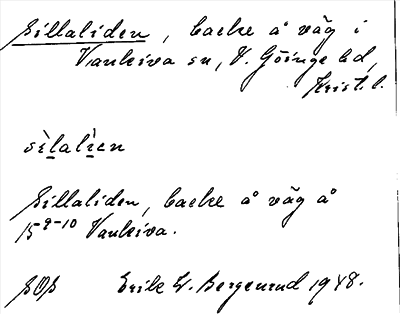 Sillaliden, backe å väg i
Vankiva sn, V. Göinge hd,
Krist. l.
sìlalìen
Sillaliden, backe å väg å
15 9-10 Vankiva.
SOS Erik W. Bergenrud 1948.